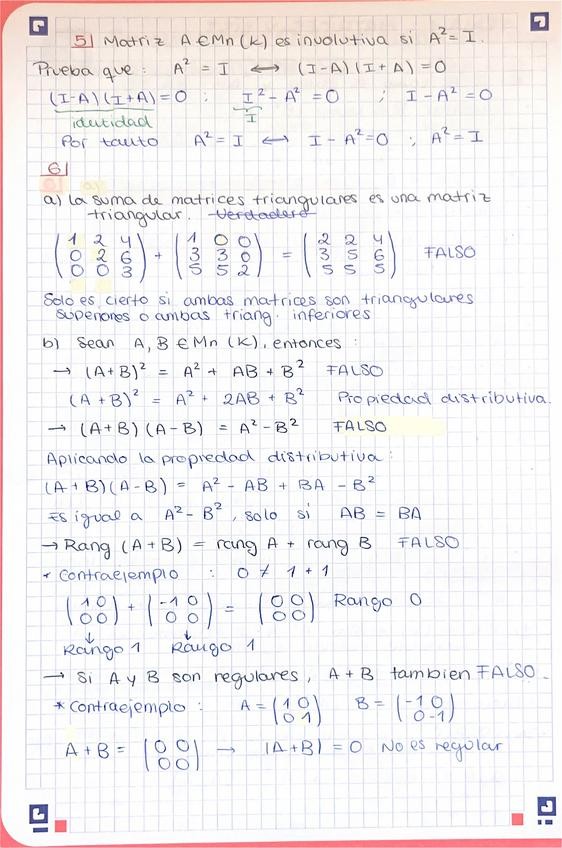 5) Matriz A ∈ Mn (K) es involutiva si A² = I.
Prueba que: A² = I ⟷ (I-A)(I+A) = 0
(I-A)(I+A)=0 ; I² - A² = 0 ; I - A² = 0
identidad I
Por tanto A² = I ⟷ I - A² = 0 ; A² = I
6)
a) La suma de matrices triangulares es una matriz
triangular. Verdadero
(1 2 4; 0 2 6; 0 0 3) + (1 0 0; 3 3 0; 5 5 2) = (2 2 4; 3 5 6; 5 5 5) FALSO
Solo es cierto si ambas matrices son triangulares
superiores o ambas triang. inferiores
b) Sean A, B ∈ Mn (K), entonces:
→ (A+B)² = A² + AB + B² FALSO
(A+B)² = A² + 2AB + B² Propiedad distributiva.
→ (A+B)(A-B) = A² - B² FALSO
Aplicando la propiedad distributiva:
(A+B)(A-B) = A² - AB + BA - B²
Es igual a A² - B², solo si AB = BA
→ Rang (A+B) = rang A + rang B FALSO
* Contraejemplo : 0 ≠ 1 + 1
(1 0; 0 0) + (-1 0; 0 0) = (0 0; 0 0) Rango 0
↓ ↓
Rango 1 Rango 1
→ Si A y B son regulares, A+B tambien FALSO.
* Contraejemplo : A = (1 0; 0 1) B = (-1 0; 0 -1)
A+B = (0 0; 0 0) → |A+B| = 0 No es regular